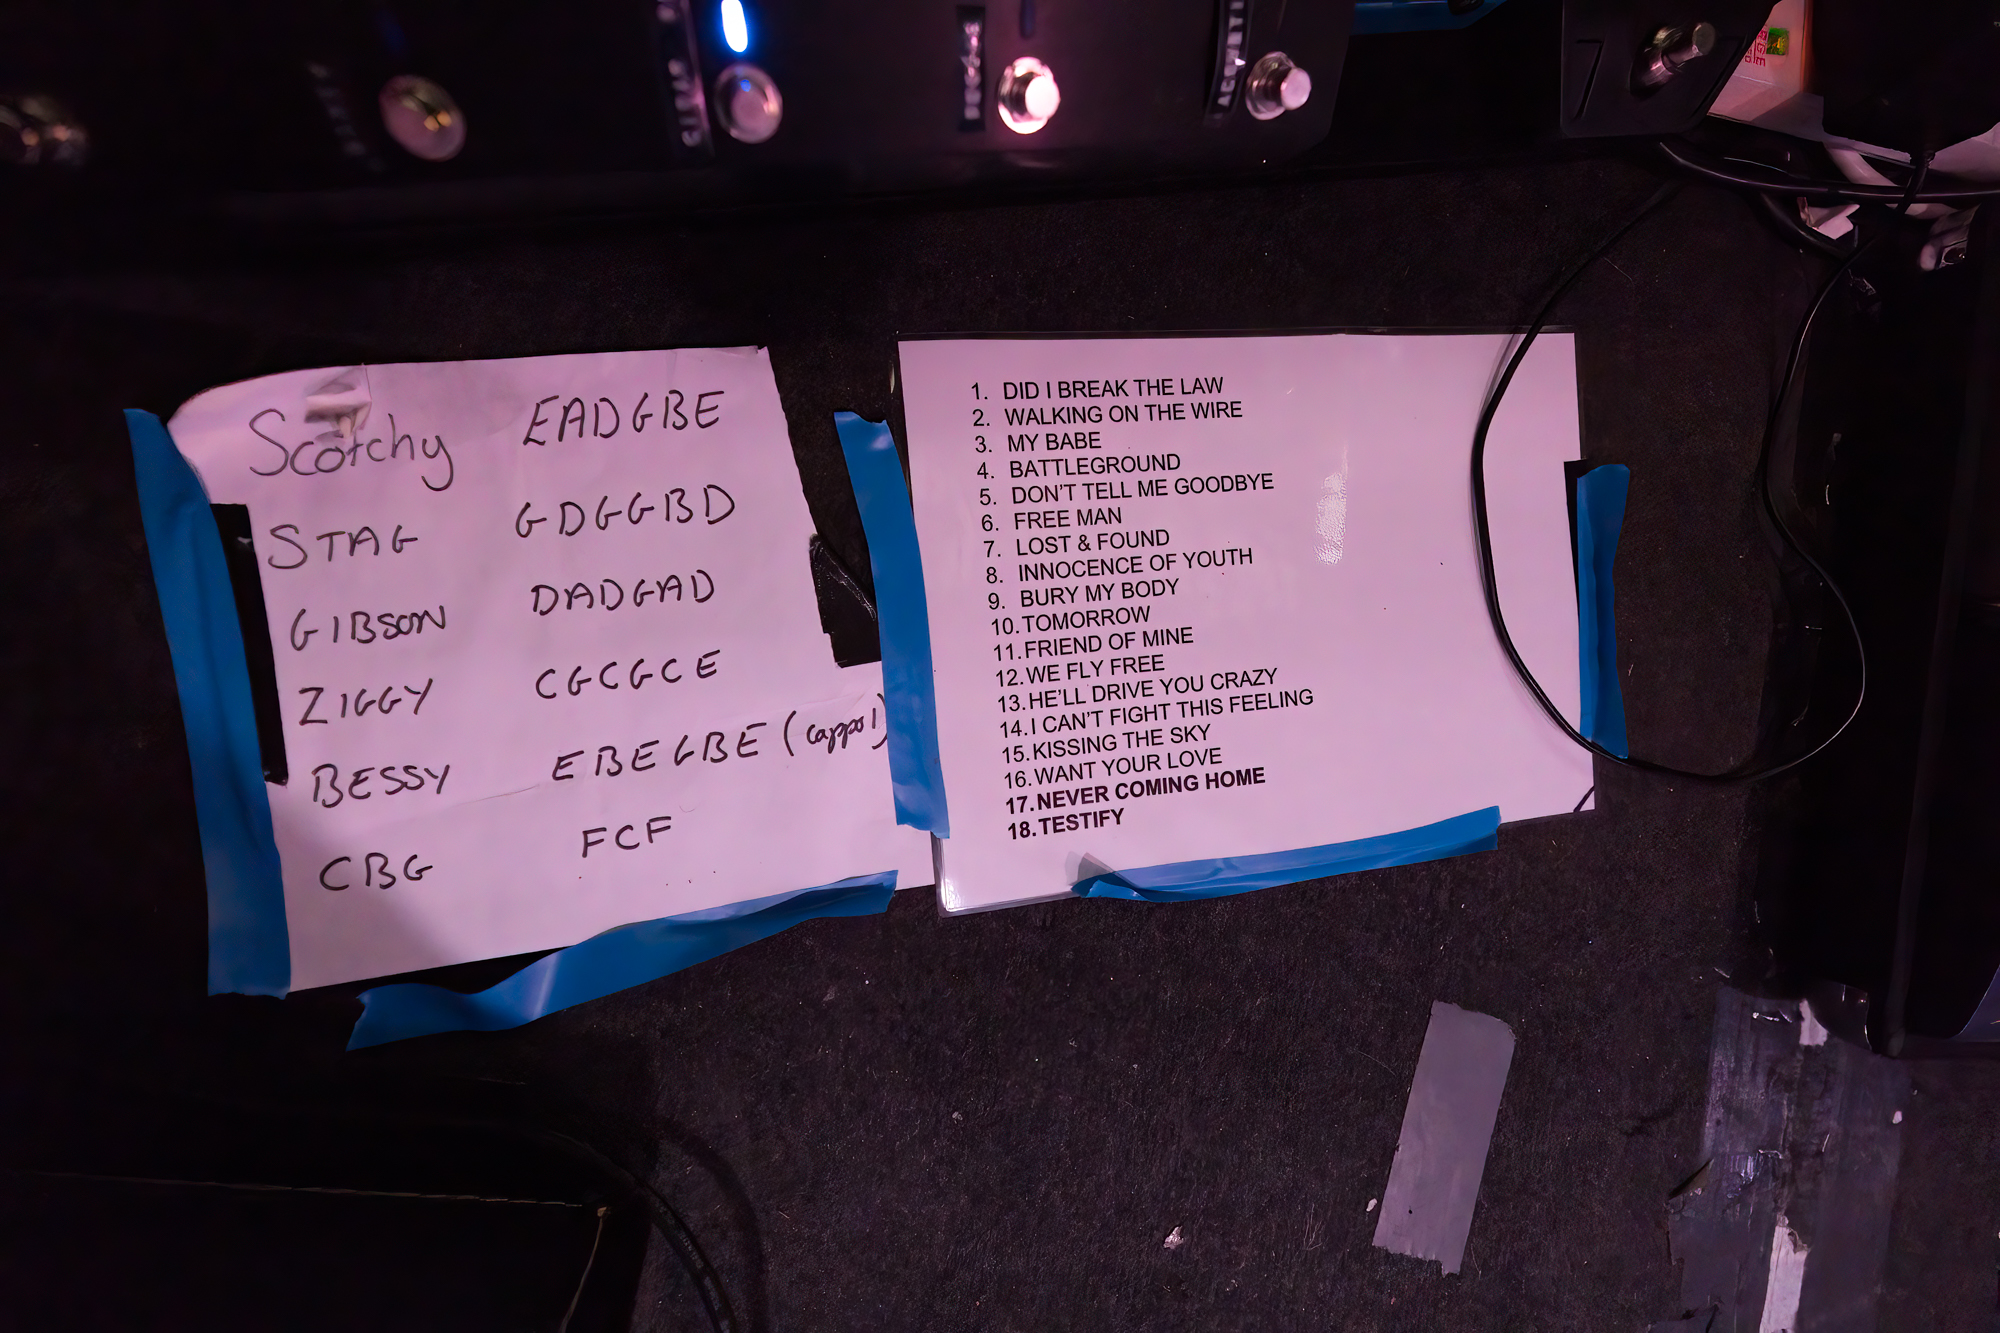 Scotchy EADGBE
STAG GDGGBD
GIBSON DADGAD
ZIGGY CGCGCE
BESSY EBEGBE (cappo 1)
CBG FCF
1. DID I BREAK THE LAW
2. WALKING ON THE WIRE
3. MY BABE
4. BATTLEGROUND
5. DON'T TELL ME GOODBYE
6. FREE MAN
7. LOST & FOUND
8. INNOCENCE OF YOUTH
9. BURY MY BODY
10. TOMORROW
11. FRIEND OF MINE
12. WE FLY FREE
13. HE'LL DRIVE YOU CRAZY
14. I CAN'T FIGHT THIS FEELING
15. KISSING THE SKY
16. WANT YOUR LOVE
17. NEVER COMING HOME
18. TESTIFY